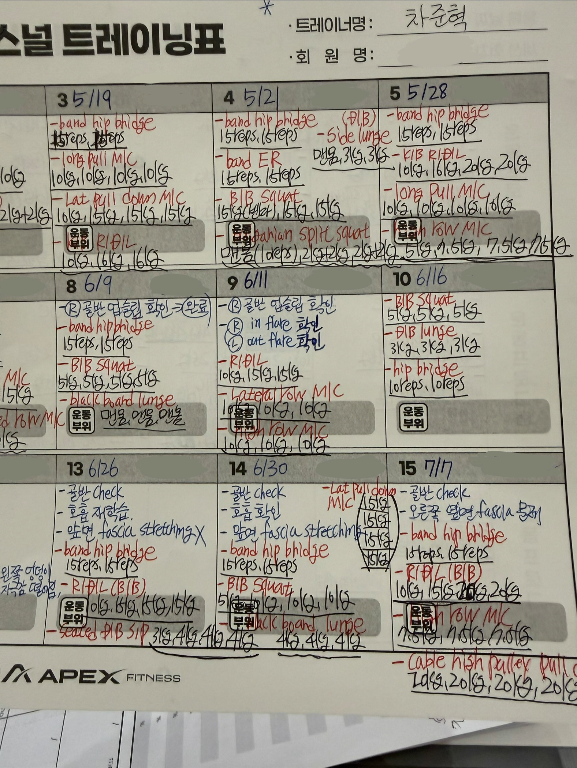 스널 트레이닝표
· 트레이너명 : 차준혁
· 회 원 명 :
3 5/19
- band hip bridge
15reps, 15reps
- long pull M/C
10kg, 10kg, 10kg, 10kg
- Lat pull down M/C
10kg, 15kg, 15kg, 15kg
운동
부위
- RDL
10kg, 16kg, 16kg
4 5/21
- band hip bridge
15reps, 15reps
- (D/B)
side lunge
맨몸, 3kg, 3kg
- band ER
15reps, 15reps
- B/B Squat
15kg, 15kg
운동
부위
split squat
맨몸(10reps), 2kg+2kg, 2kg+2kg
5 5/28
- band hip bridge
15reps, 15reps
- K/B RDL
10kg, 16kg, 20kg, 20kg
- long Pull M/C
10kg, 10kg, 10kg, 10kg
운동
부위
row M/C
5kg, 7.5kg, 7.5kg, 7.5kg
10kg
2kg+2kg
M/C
15kg
row M/C
8 6/9
- Ⓡ 골반 업슬립 확인 → (완료)
- band hip bridge
15reps, 15reps
- B/B Squat
5kg, 5kg, 5kg, 5kg
- black board lunge
운동
부위
맨몸, 맨몸, 맨몸
9 6/11
- Ⓡ 골반 업슬립 확인
- Ⓡ in flare 확인
- Ⓛ out flare 확인
- RDL
10kg, 15kg, 15kg
- Lateral row M/C
10kg, 10kg, 10kg
운동
부위
row M/C
10kg, 10kg, 10kg
10 6/16
- B/B Squat
5kg, 5kg, 5kg
- D/B lunge
3kg, 3kg, 3kg
- hip bridge
10reps, 10reps
운동
부위
13 6/26
- 골반 check
- 호흡 재학습
- 앞면 fascia stretching X
- band hip bridge
15reps, 15reps
- RDL (B/B)
운동
부위
10kg, 15kg, 15kg, 15kg
- seated D/B S/P 3kg, 4kg, 4kg, 4kg
14 6/30
- 골반 check
- 호흡 확인
- 앞면 fascia stretching
- band hip bridge
15reps, 15reps
- B/B Squat
5kg, 10kg, 10kg
운동
부위
- black board lunge
4kg, 4kg, 4kg
- Lat pull down
M/C
15kg
15kg
15kg
15kg
15 7/7
- 골반 check
- 오른쪽 앞면 fascia 문제
- band hip bridge
15reps, 15reps
- RDL (B/B)
10kg, 15kg, 20kg, 20kg
운동
부위
row M/C
7.5kg, 7.5kg, 7.5kg
- Cable high pulley pull
20kg, 20kg, 20kg, 20kg
APEX FITNESS